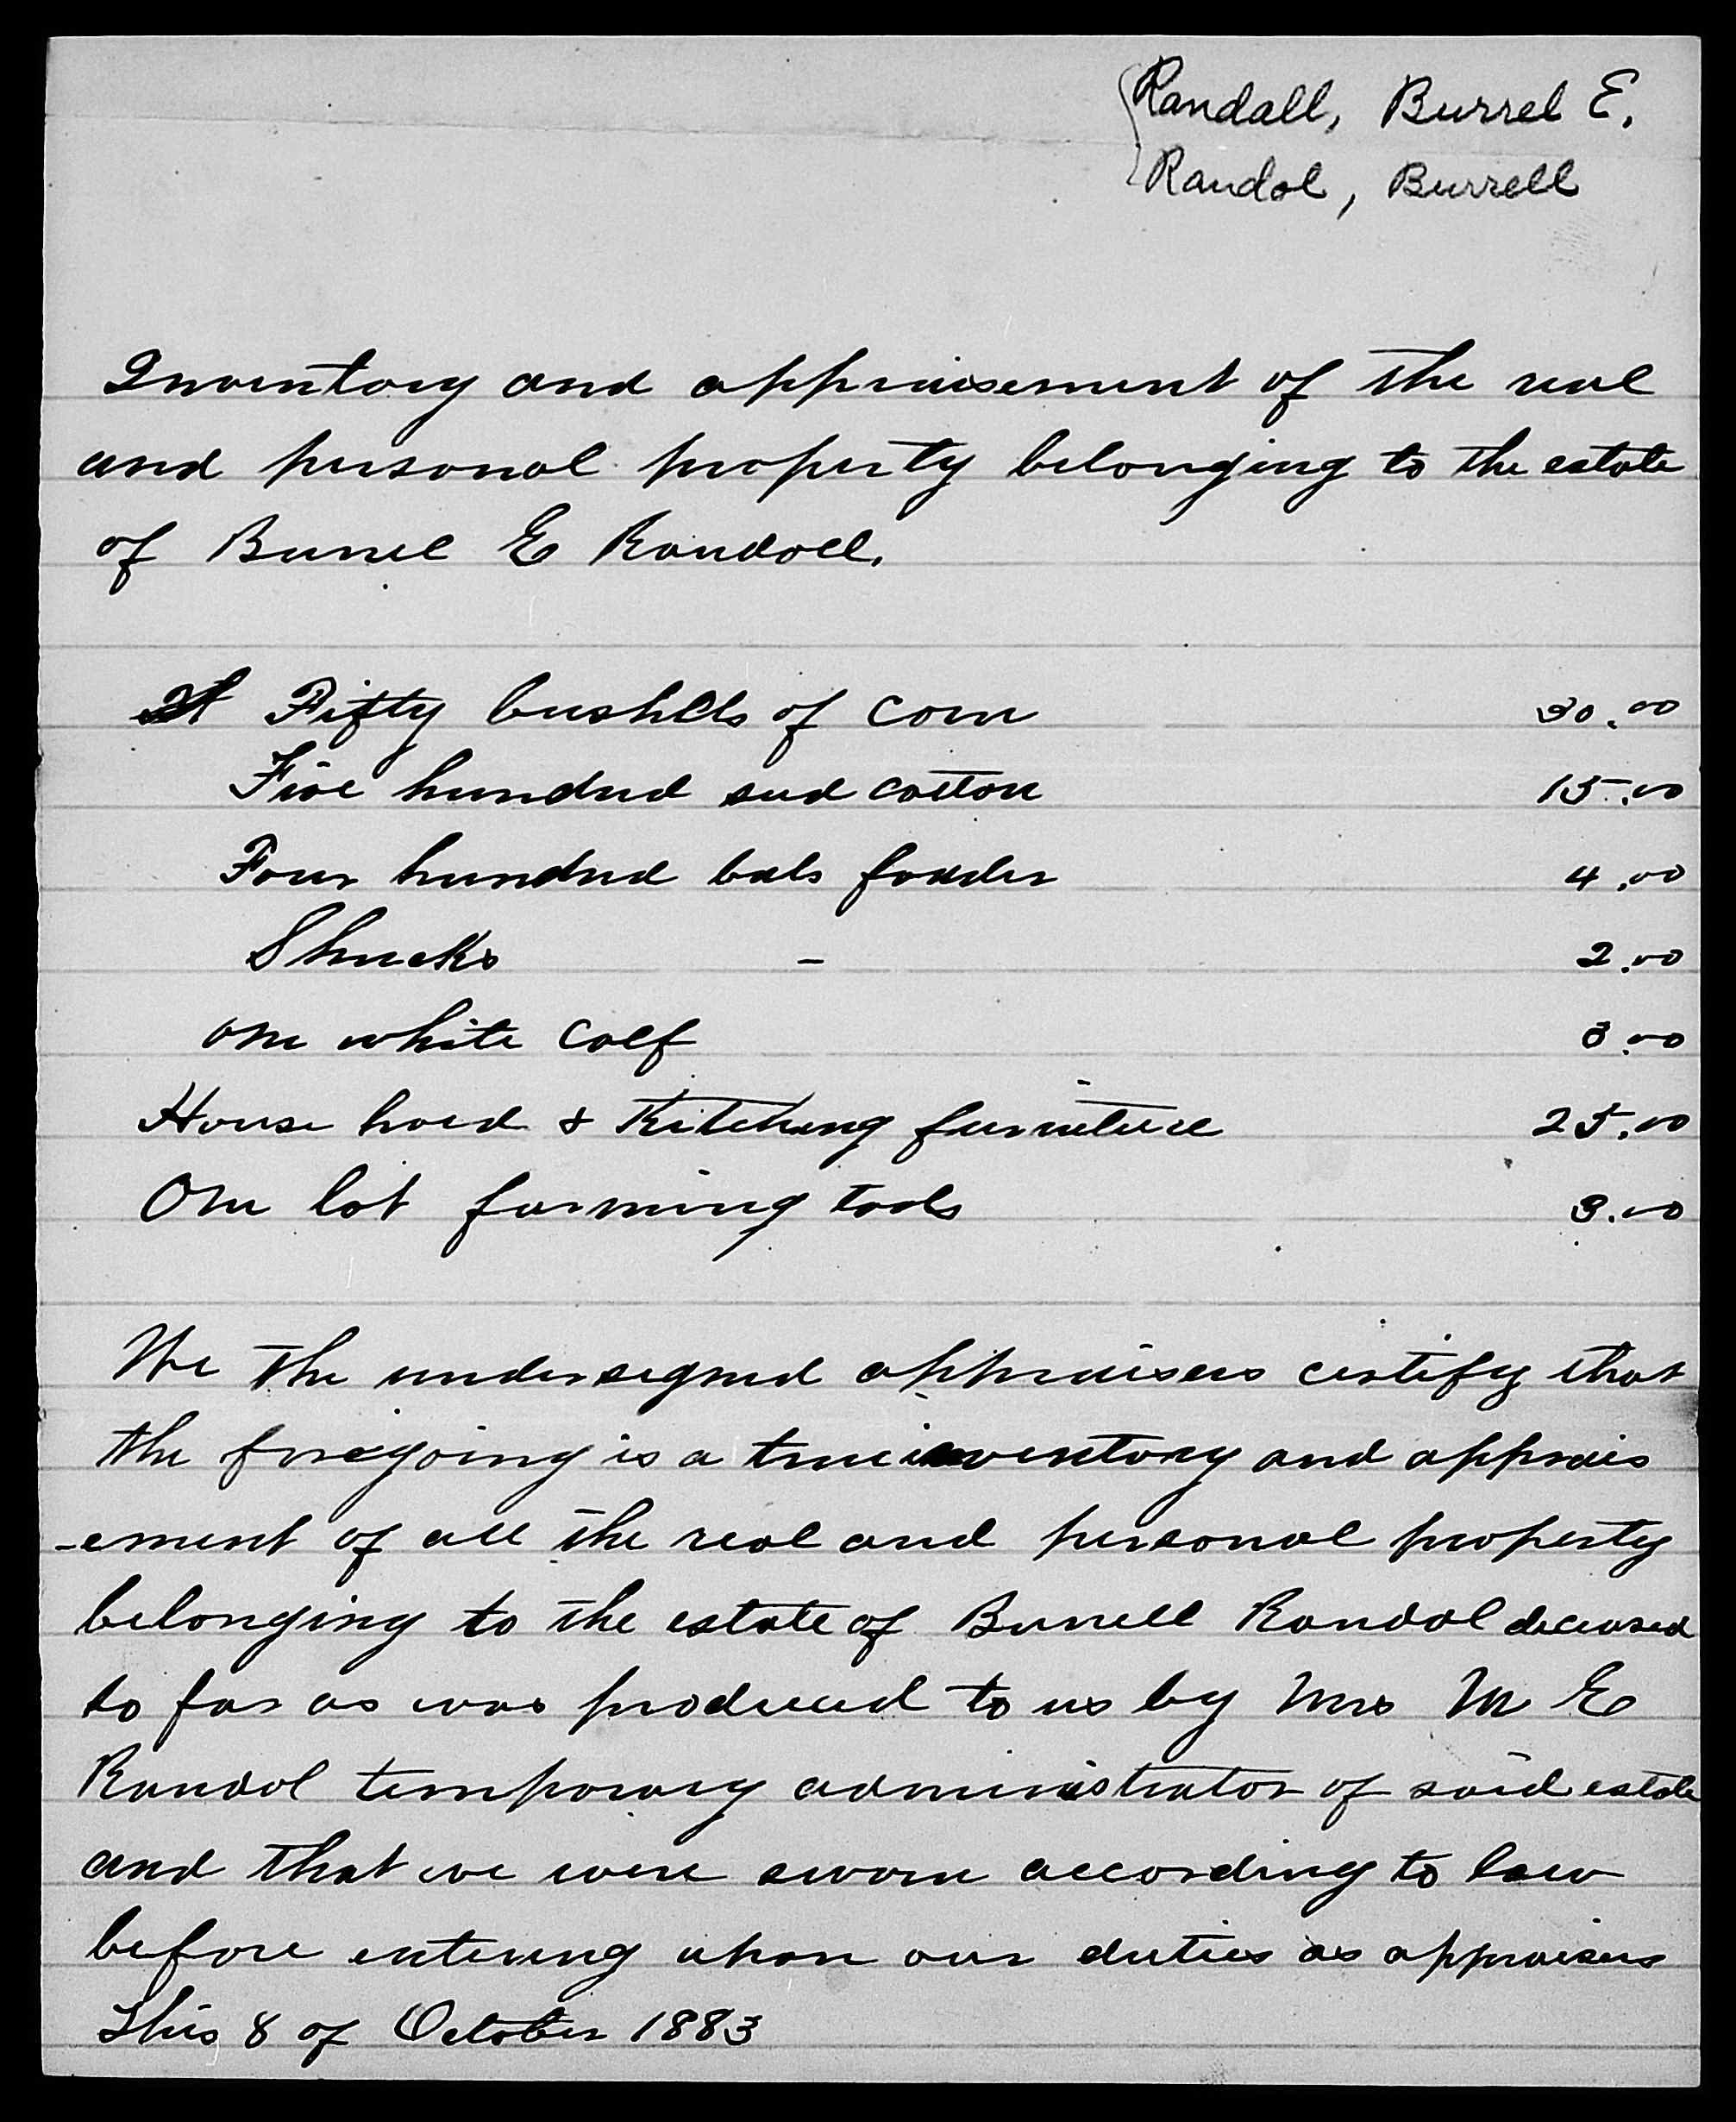 Randall, Burrel E.
Randol, Burrell
Inventory and appraisement of the real
and personal property belonging to the estate
of Burrel E Randall.
Fifty bushels of corn 30.00
Five hundred seed cotton 15.00
Four hundred bdls fodder 4.00
Shucks - 2.00
One white calf 3.00
House hold & Kitching furniture 25.00
One lot farming tools 3.00
We the undersigned appraisers certify that
the foregoing is a true inventory and apprais
-ement of all the real and personal property
belonging to the estate of Burrell Randol deceased
so far as was produced to us by Mrs M E
Randol temporary administrator of said estate
and that we were sworn according to law
before entering upon our duties as appraisers
This 8 of October 1883